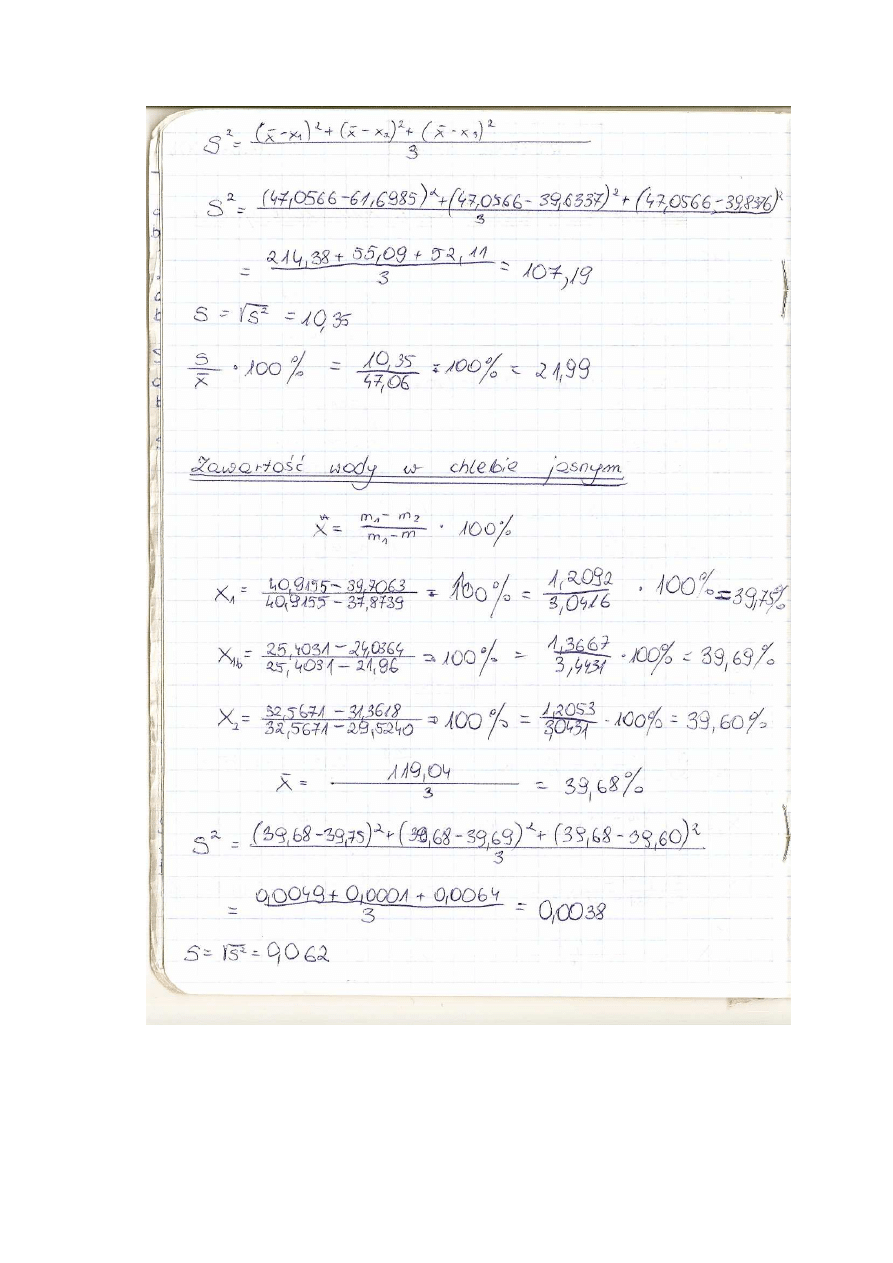 S² = ((x̄-x₁)² + (x̄-x₂)² + (x̄-x₃)²)/3
S² = ((47,0566-61,6985)² + (47,0566-39,6337)² + (47,0566-39,8376)²)/3
= (214,38 + 55,09 + 52,11)/3 = 107,19
S = √S² = 10,35
S/x̄ · 100% = 10,35/47,06 · 100% = 21,99
Zawartość wody w chlebie jasnym
X = (m₁-m₂)/(m₁-m) · 100%
X₁ = (40,9155-39,7063)/(40,9155-37,8739) · 100% = 1,2092/3,0416 · 100% = 39,75%
X₁b = (25,4031-24,0364)/(25,4031-21,96) · 100% = 1,3667/3,4431 · 100% = 39,69%
X₂ = (32,5671-31,3618)/(32,5671-29,5240) · 100% = 1,2053/3,0431 · 100% = 39,60%
x̄ = 119,04/3 = 39,68%
S² = ((39,68-39,75)² + (39,68-39,69)² + (39,68-39,60)²)/3
= (0,0049 + 0,0001 + 0,0064)/3 = 0,0038
S = √S² = 0,062